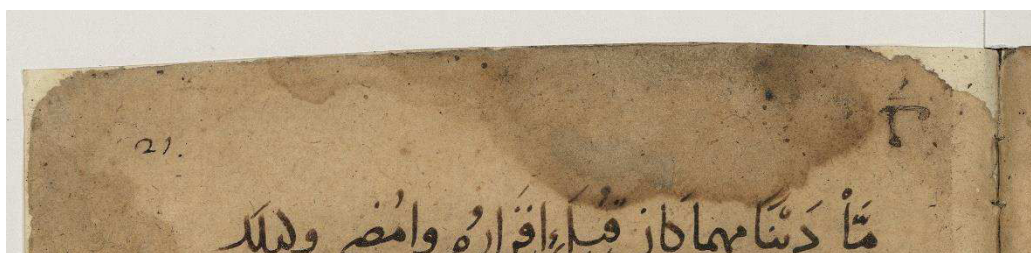 21.
مَّا دَيْنًا مهما كان قُبِلَ إقْرَارُه وامُضى